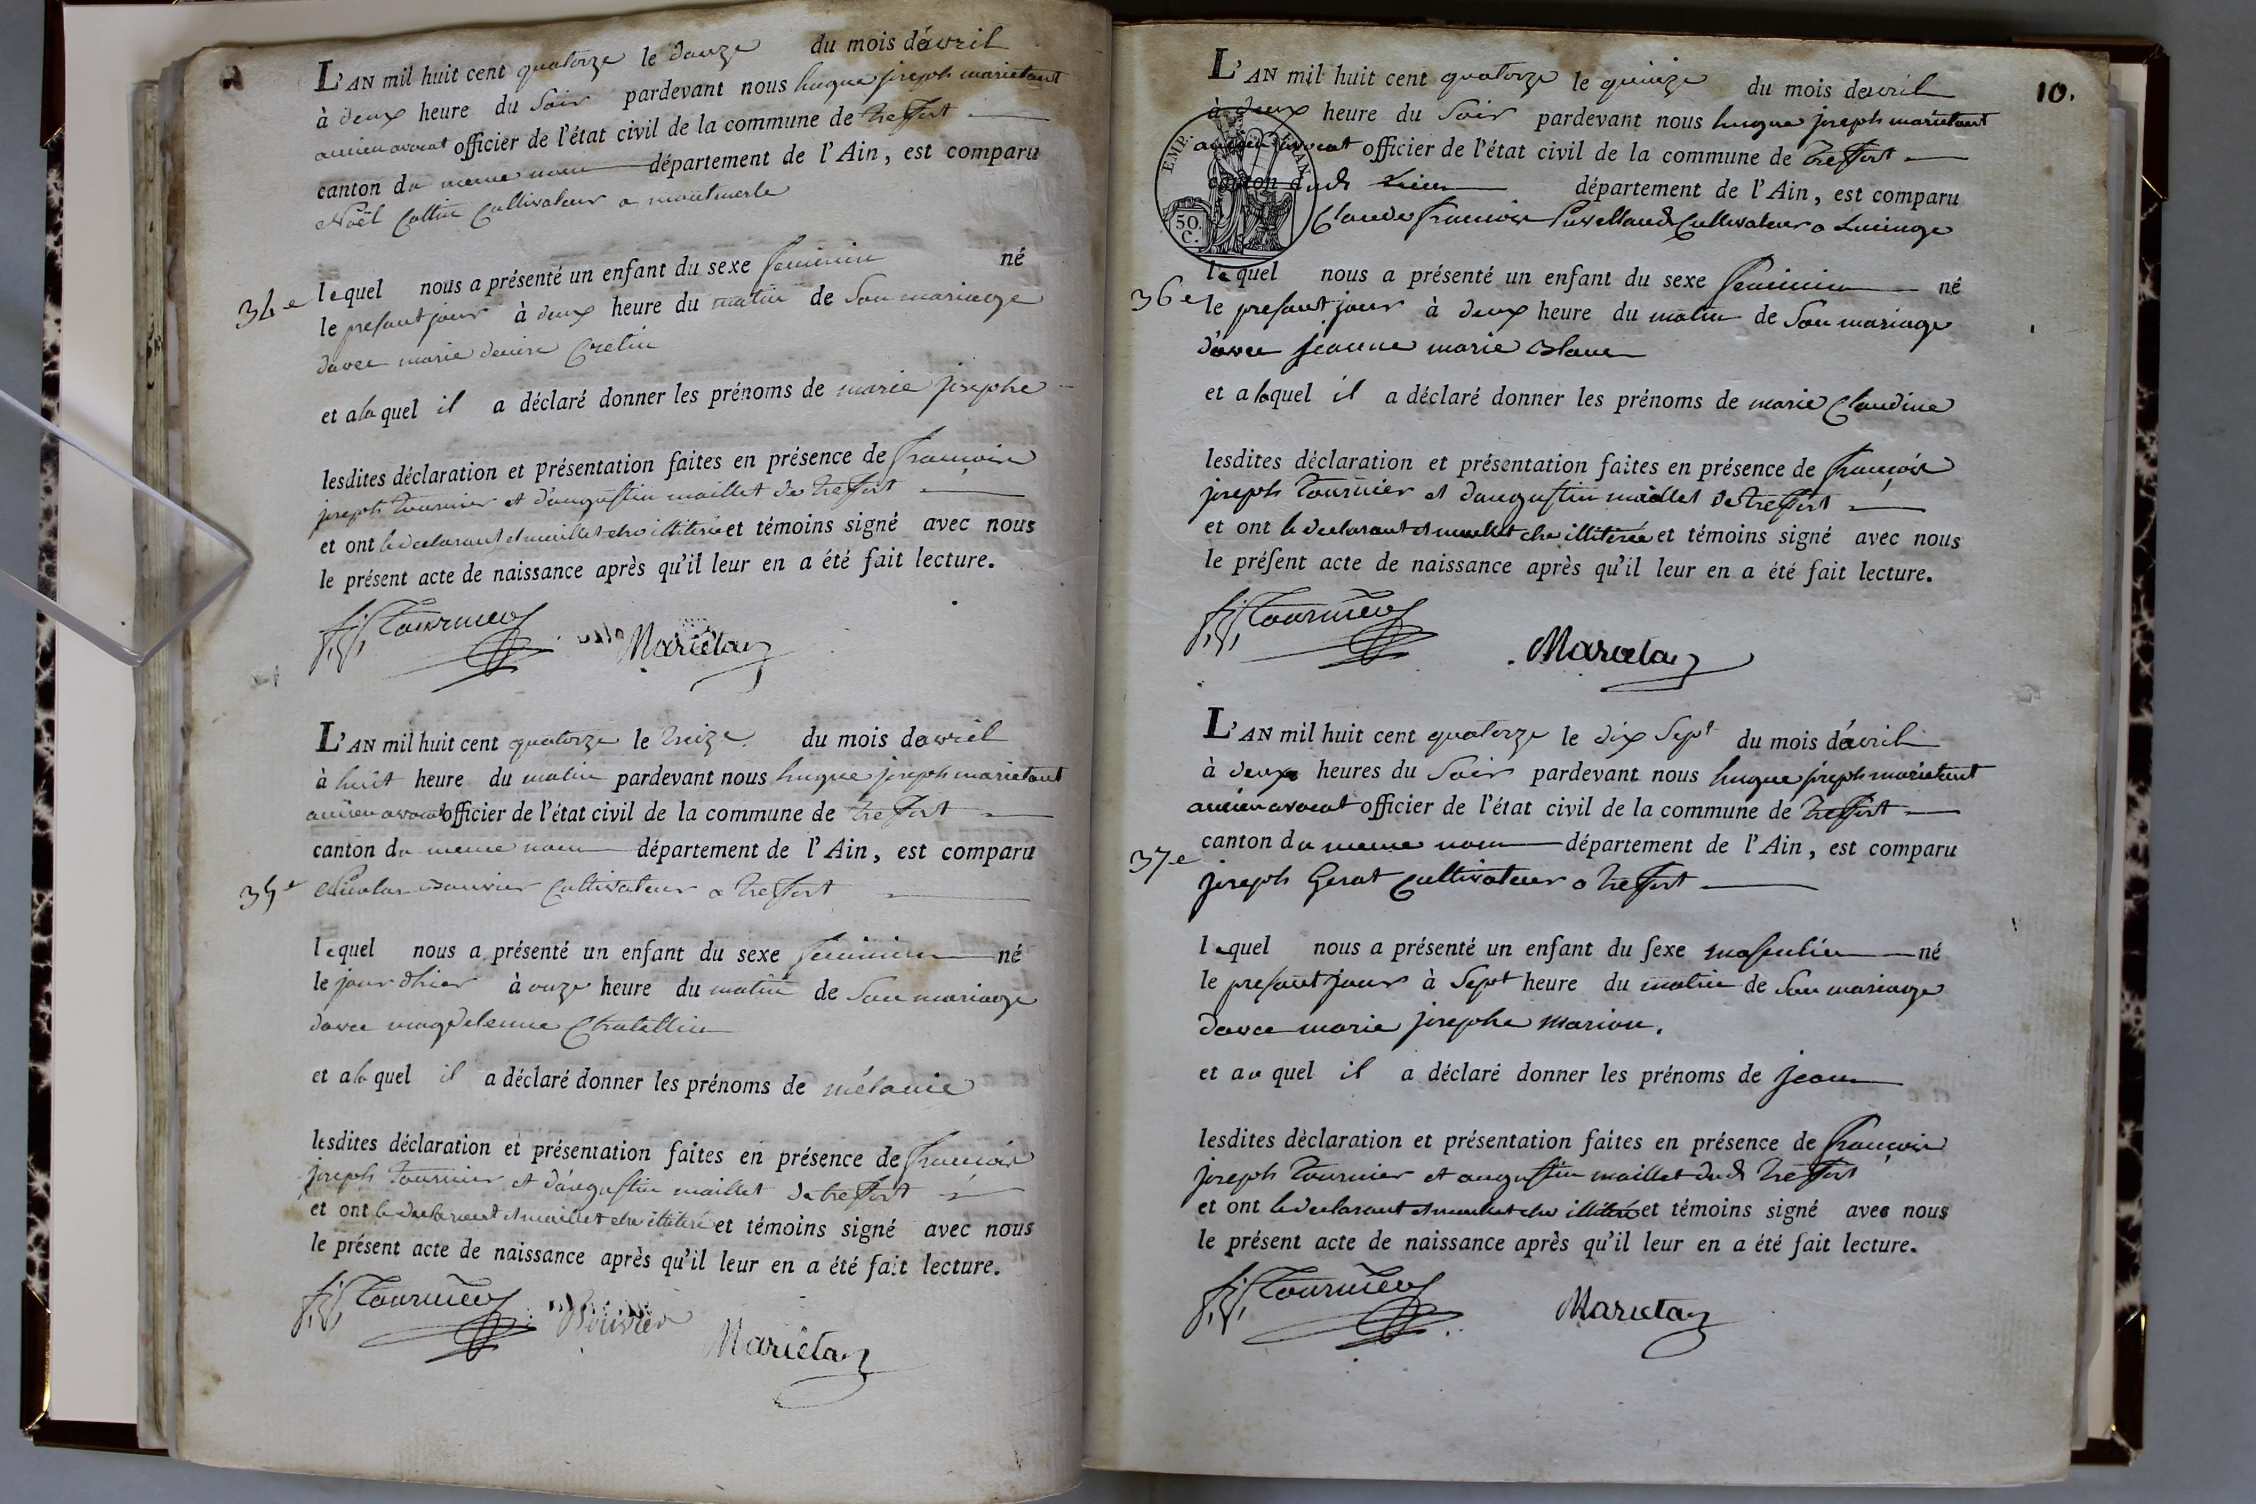 L'AN mil huit cent quatorze le douze du mois d'avril
à deux heure du Soir pardevant nous hugue joseph marietant
ancien avocat officier de l'état civil de la commune de treffort
canton du meme nom département de l'Ain, est comparu
Noël Cottin Cultivateur a montmerle
34e lequel nous a présenté un enfant du sexe feminin né
le presant jour à deux heure du matin de Son mariage
davec marie denise Cretin
et a la quel il a déclaré donner les prénoms de marie josephe
lesdites déclaration et présentation faites en présence de françois
joseph tournier et d'augustin maillet de treffort
et ont le declarant et maillet illitéré et témoins signé avec nous
le présent acte de naissance après qu'il leur en a été fait lecture.
f. j. Tournier Marietan
L'AN mil huit cent quatorze le treize du mois davril
à huit heure du matin pardevant nous hugue joseph marietant
ancien avocat officier de l'état civil de la commune de treffort
canton du meme nom département de l'Ain, est comparu
35e Nicolas Bouvier Cultivateur a treffort
lequel nous a présenté un enfant du sexe feminin né
le jour d'hier à onze heure du matin de Son mariage
davec magdelenne Chatellin
et a la quel il a déclaré donner les prénoms de mélanie
lesdites déclaration et présentation faites en présence de françois
joseph tournier et d'augustin maillet de treffort
et ont le declarant et maillet illitéré et témoins signé avec nous
le présent acte de naissance après qu'il leur en a été fait lecture.
f. j. Tournier Bouvier Marietan
10.
L'AN mil huit cent quatorze le quinze du mois davril
à deux heure du Soir pardevant nous hugue joseph marietant
ancien avocat officier de l'état civil de la commune de treffort
canton dudt Lieu département de l'Ain, est comparu
EMP. FRAN
50. C.
Claude françois Cultivateur a Lucinge
36e lequel nous a présenté un enfant du sexe feminin né
le presant jour à deux heure du matin de Son mariage
d'avec jeanne marie Blanc
et a la quel il a déclaré donner les prénoms de marie Claudine
lesdites déclaration et présentation faites en présence de françois
joseph tournier et d'augustin maillet de treffort
et ont le declarant et maillet illitérée et témoins signé avec nous
le présent acte de naissance après qu'il leur en a été fait lecture.
f. j. Tournier Marietan
L'AN mil huit cent quatorze le dix Sept du mois d'avril
à deux heures du Soir pardevant nous hugue joseph marietant
ancien avocat officier de l'état civil de la commune de treffort
canton du meme nom département de l'Ain, est comparu
37e joseph Gerat Cultivateur a treffort
lequel nous a présenté un enfant du sexe masculin né
le presant jour à Sept heure du matin de Son mariage
davec marie josephe marion.
et au quel il a déclaré donner les prénoms de jean
lesdites déclaration et présentation faites en présence de françois
joseph tournier et augustin maillet dudt treffort
et ont le declarant et maillet illitéré et témoins signé avec nous
le présent acte de naissance après qu'il leur en a été fait lecture.
f. j. Tournier Marietan